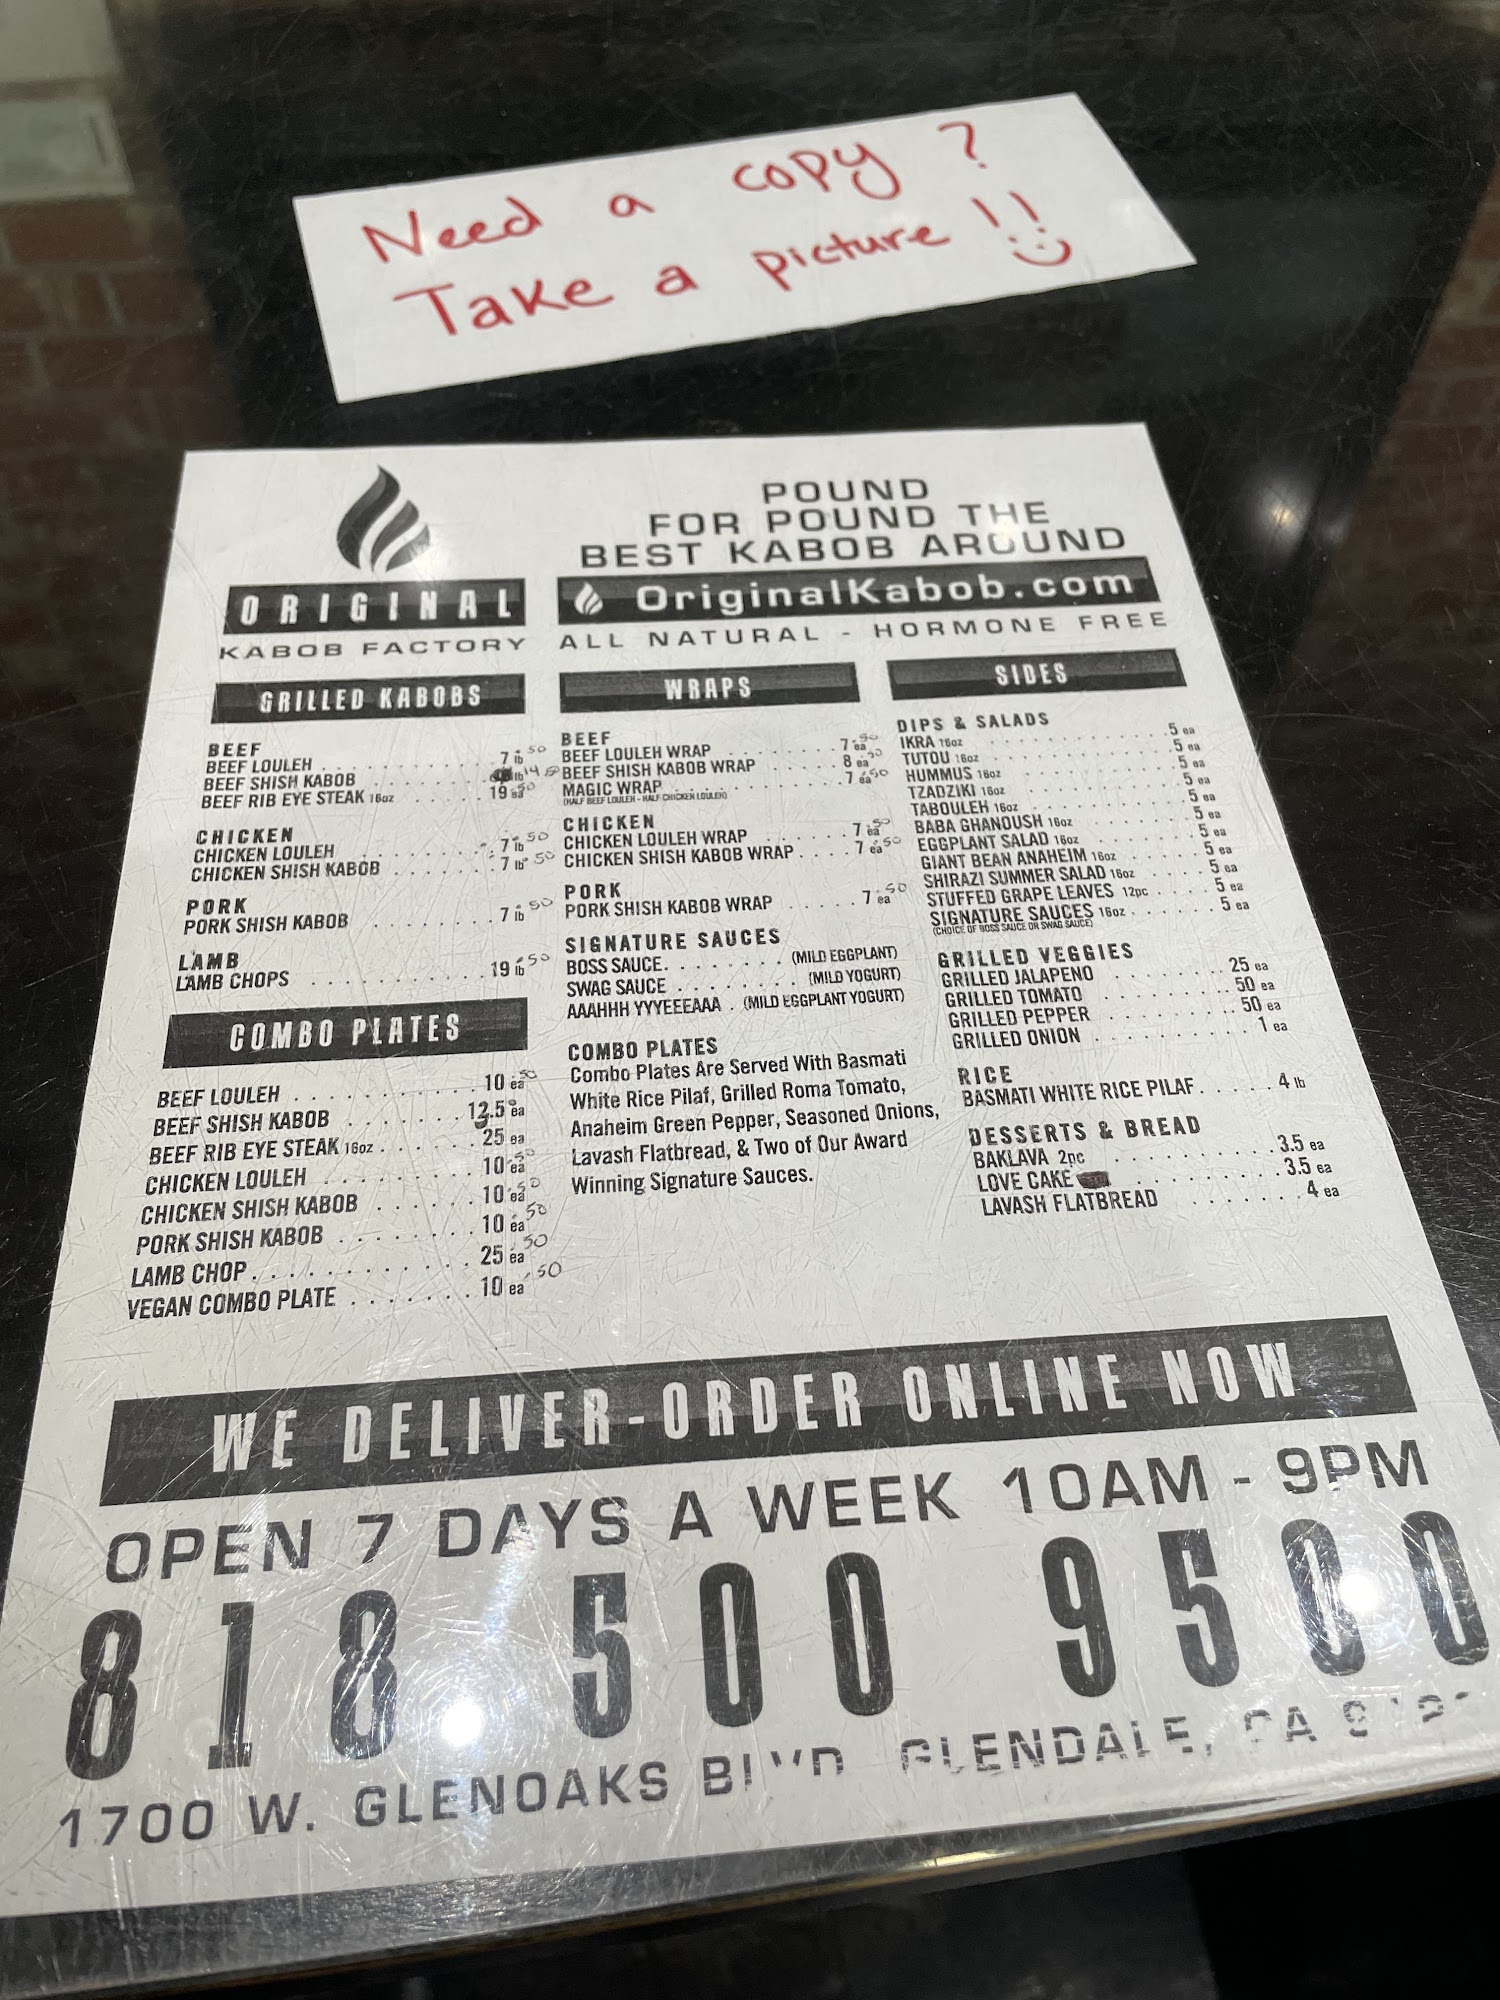 Need a copy ?
Take a picture !!
POUND
FOR POUND THE
BEST KABOB AROUND
ORIGINAL
KABOB FACTORY
OriginalKabob.com
ALL NATURAL - HORMONE FREE
GRILLED KABOBS
BEEF
BEEF LOULEH . . . . . . . . . . 7 lb .50
BEEF SHISH KABOB . . . . . . . lb 14.50
BEEF RIB EYE STEAK 16oz . . . . . 19 ea .50
CHICKEN
CHICKEN LOULEH . . . . . . . . 7 lb .50
CHICKEN SHISH KABOB . . . . . . 7 lb .50
PORK
PORK SHISH KABOB . . . . . . . 7 lb .50
LAMB
LAMB CHOPS . . . . . . . . . . 19 lb .50
COMBO PLATES
BEEF LOULEH . . . . . . . . . . 10 ea .50
BEEF SHISH KABOB . . . . . . . 13.5 ea
BEEF RIB EYE STEAK 16oz . . . . . 25 ea
CHICKEN LOULEH . . . . . . . . 10 ea .50
CHICKEN SHISH KABOB . . . . . . 10 ea .50
PORK SHISH KABOB . . . . . . . 10 ea .50
LAMB CHOP . . . . . . . . . . . 25 ea .50
VEGAN COMBO PLATE . . . . . . . 10 ea .50
WRAPS
BEEF
BEEF LOULEH WRAP . . . . . . . 7 ea .50
BEEF SHISH KABOB WRAP . . . . . 8 ea .50
MAGIC WRAP . . . . . . . . . . 7 ea .50
(HALF BEEF LOULEH - HALF CHICKEN LOULEH)
CHICKEN
CHICKEN LOULEH WRAP . . . . . . 7 ea .50
CHICKEN SHISH KABOB WRAP . . . . 7 ea .50
PORK
PORK SHISH KABOB WRAP . . . . . 7 ea .50
SIGNATURE SAUCES
BOSS SAUCE . . . . . . . . (MILD EGGPLANT)
SWAG SAUCE . . . . . . . . (MILD YOGURT)
AAAHHH YYYEEEAAA . (MILD EGGPLANT YOGURT)
COMBO PLATES
Combo Plates Are Served With Basmati
White Rice Pilaf, Grilled Roma Tomato,
Anaheim Green Pepper, Seasoned Onions,
Lavash Flatbread, & Two of Our Award
Winning Signature Sauces.
SIDES
DIPS & SALADS
IKRA 16oz . . . . . . . . . . . 5 ea
TUTOU 16oz . . . . . . . . . . 5 ea
HUMMUS 16oz . . . . . . . . . . 5 ea
TZADZIKI 16oz . . . . . . . . . 5 ea
TABOULEH 16oz . . . . . . . . . 5 ea
BABA GHANOUSH 16oz . . . . . . . 5 ea
EGGPLANT SALAD 16oz . . . . . . . 5 ea
GIANT BEAN ANAHEIM 16oz . . . . . 5 ea
SHIRAZI SUMMER SALAD 16oz . . . . 5 ea
STUFFED GRAPE LEAVES 12pc . . . . 5 ea
SIGNATURE SAUCES 16oz . . . . . . 5 ea
(CHOICE OF BOSS SAUCE OR SWAG SAUCE)
GRILLED VEGGIES
GRILLED JALAPENO . . . . . . . .25 ea
GRILLED TOMATO . . . . . . . . .50 ea
GRILLED PEPPER . . . . . . . . .50 ea
GRILLED ONION . . . . . . . . . 1 ea
RICE
BASMATI WHITE RICE PILAF . . . . . 4 lb
DESSERTS & BREAD
BAKLAVA 2pc . . . . . . . . . . 3.5 ea
LOVE CAKE . . . . . . . . . . 3.5 ea
LAVASH FLATBREAD . . . . . . . 4 ea
WE DELIVER-ORDER ONLINE NOW
OPEN 7 DAYS A WEEK 10AM - 9PM
818 500 9500
1700 W. GLENOAKS BLVD. GLENDALE, CA